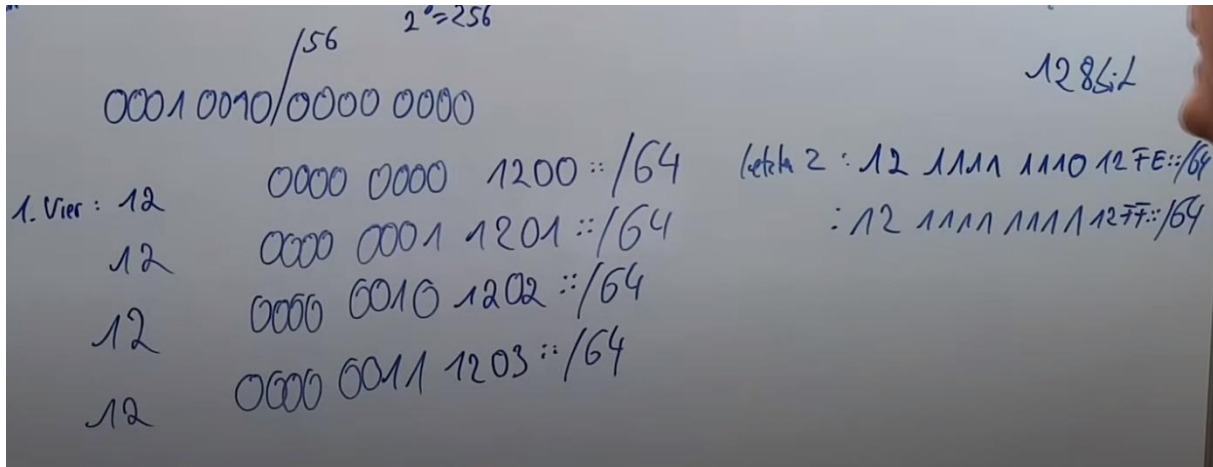 /56 2⁸=256
00010010/0000 0000
128bit
1. Vier : 12 0000 0000 1200::/64
12 0000 0001 1201::/64
12 0000 0010 1202::/64
12 0000 0011 1203::/64
letzte 2 : 12 1111 1110 12FE::/64
: 12 1111 1111 12FF::/64